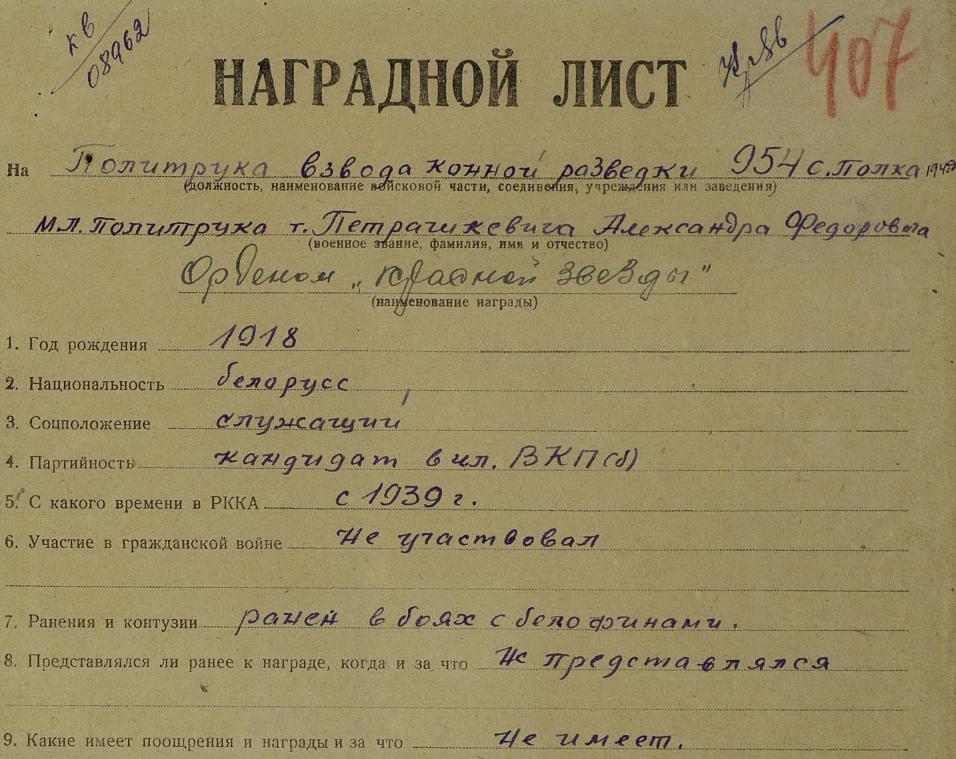 кв
08962
407
НАГРАДНОЙ ЛИСТ
На Политрука взвода конной разведки 954 с. полка
(должность, наименование войсковой части, соединения, учреждения или заведения)
мл. политрука т. Петрашкевича Александра Федоровича
(военное звание, фамилия, имя и отчество)
Орденом „Красной Звезды"
(наименование награды)
1. Год рождения 1918
2. Национальность белорусс
3. Соцположение служащий
4. Партийность кандидат в чл. ВКП(б)
5. С какого времени в РККА с 1939 г.
6. Участие в гражданской войне Не участвовал
7. Ранения и контузии ранен в боях с белофинами.
8. Представлялся ли ранее к награде, когда и за что Не представлялся
9. Какие имеет поощрения и награды и за что Не имеет.